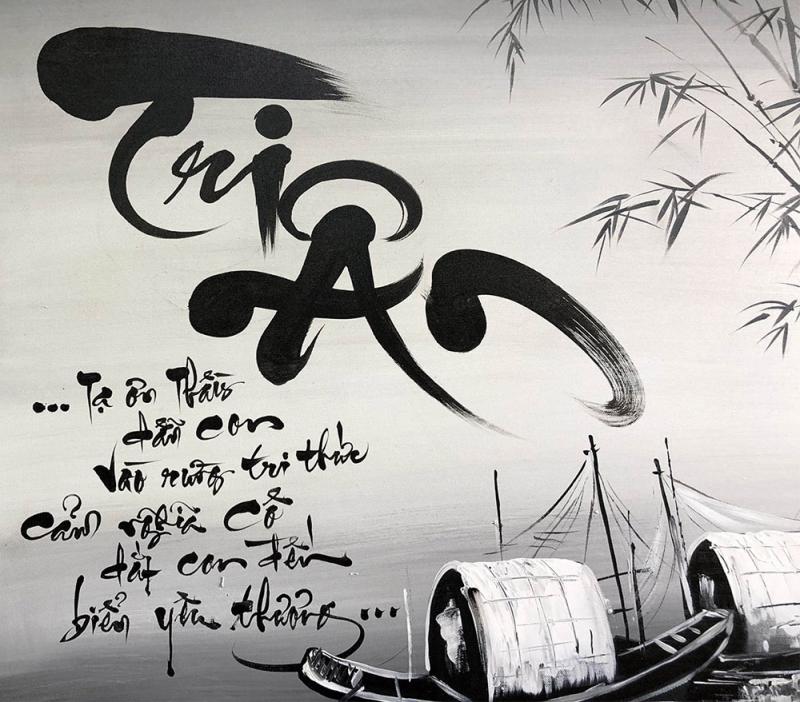 Tri
Ân
... Tạ ơn Thầy
dẫn con
vào rừng tri thức
cảm nghĩa Cô
dắt con đến
biển yêu thương...